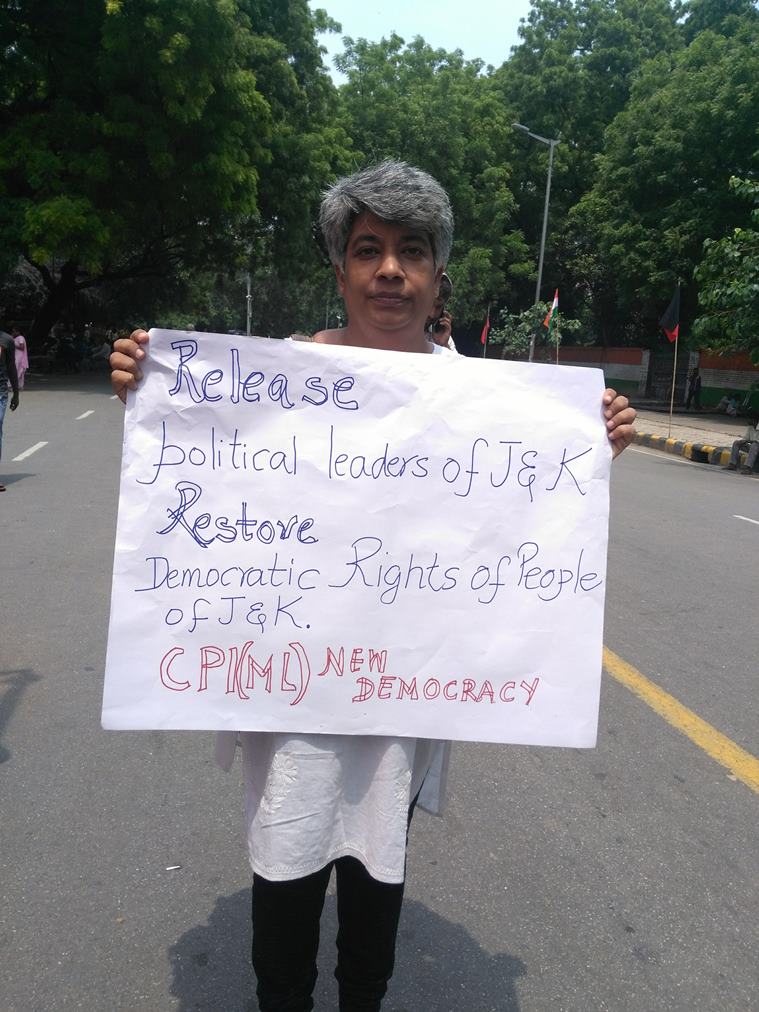 Release
political leaders of J&K
Restore
Democratic Rights of People
of J&K.
CPI(ML) NEW
DEMOCRACY